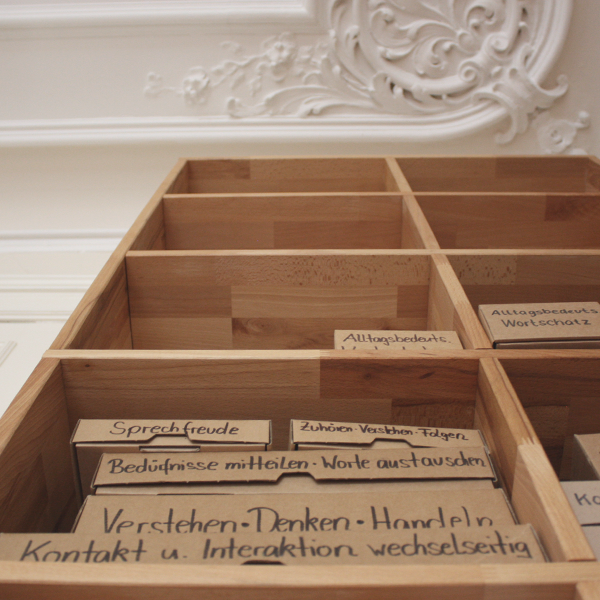 Alltagsbedeuts.
Wortschatz
Alltagsbedeuts.
Sprechfreude
Zuhören·Verstehen·Folgen
Bedüfnisse mitteilen·Worte austauschen
Verstehen·Denken·Handeln
Kontakt u. Interaktion wechselseitig